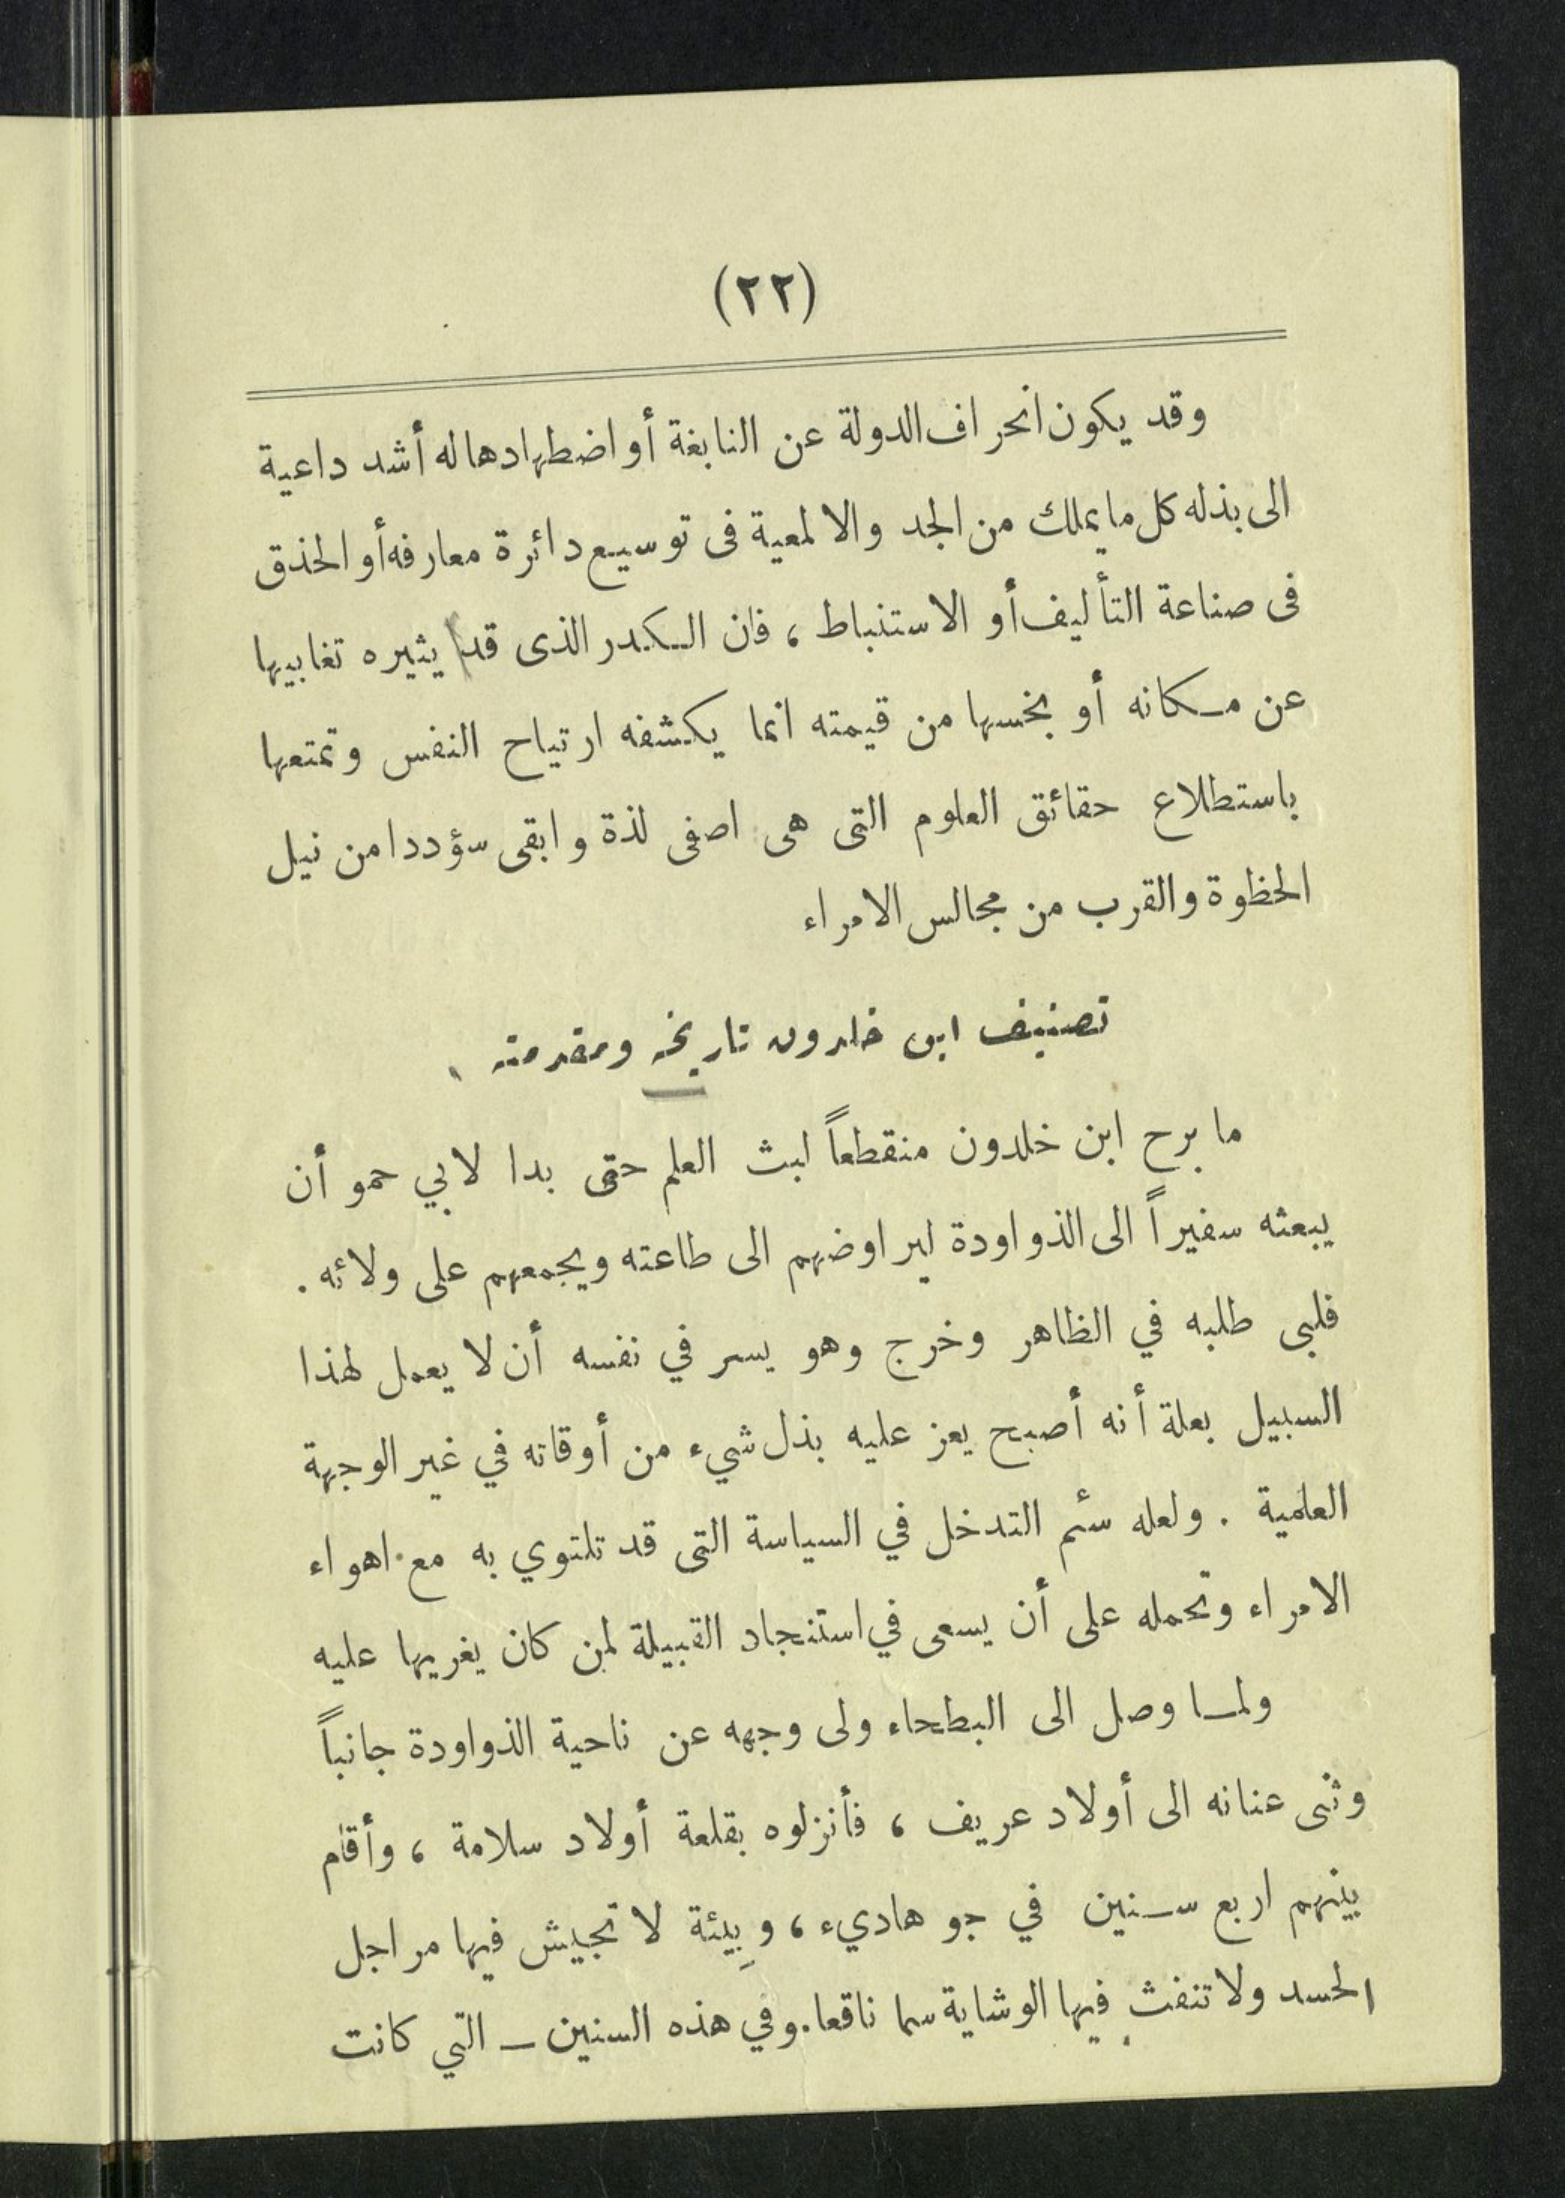 (٢٢)
وقد يكون انحراف الدولة عن النابغة أو اضطهادها له أشد داعية
الى بذله كل ما يملك من الجد والالمعية فى توسيع دائرة معارفه أو الحذق
فى صناعة التأليف أو الاستنباط ، فان الكدر الذى قد يثيره تغابيها
عن مكانه أو بخسها من قيمته انما يكشفه ارتياح النفس وتمتعها
باستطلاع حقائق العلوم التى هى اصفى لذة وابقى سؤددا من نيل
الحظوة والقرب من مجالس الامراء
تصنيف ابن خلدون تاريخه ومقدمته
ما برح ابن خلدون منقطعاً لبث العلم حتى بدا لابي حمو أن
يبعثه سفيراً الى الذواودة ليراوضهم الى طاعته ويجمعهم على ولائه .
فلبى طلبه في الظاهر وخرج وهو يسر في نفسه أن لا يعمل لهذا
السبيل بعلة أنه أصبح يعز عليه بذل شيء من أوقاته في غير الوجهة
العلمية . ولعله سئم التدخل في السياسة التى قد تلتوي به مع اهواء
الامراء وتحمله على أن يسعى في استنجاد القبيلة لمن كان يغريها عليه
ولما وصل الى البطحاء ولى وجهه عن ناحية الذواودة جانباً
وثنى عنانه الى أولاد عريف ، فأنزلوه بقلعة أولاد سلامة ، وأقام
بينهم اربع سنين في جو هاديء ، وبِيئة لا تجيش فيها مراجل
الحسد ولا تنفث فيها الوشاية سما ناقعا . وفي هذه السنين ــ التي كانت